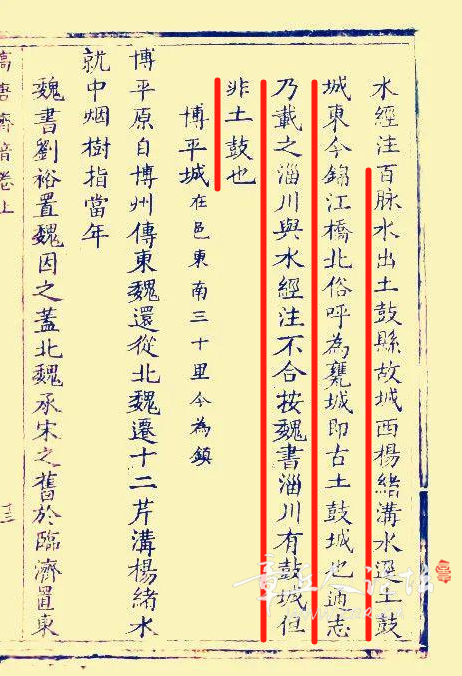 水經注百脉水出土鼓縣故城西楊緒溝水逕土鼓
城東今錦江橋北俗呼為甕城即古土鼓城也通志
乃載之淄川與水經注不合按魏書淄川有鼓城但
非土鼓也
博平城在邑東南三十里今為鎮
博平原自博州傳東魏還從北魏遷十二芹溝楊緒水
就中烟樹指當年
魏書劉裕置魏因之蓋北魏承宋之舊於臨濟置東
高唐齊音卷上
十三